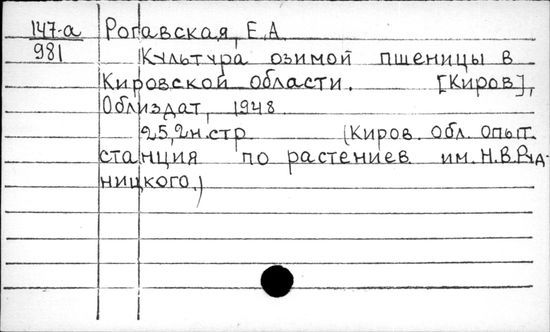 147-а Рогавская, Е.А.
981 Культура озимой пшеницы в
Кировской области. [Киров],
Облиздат, 1948.
25,2н.стр. (Киров. обл. опыт.
станция по растениев. им. Н.В.Руд-
ницкого.)